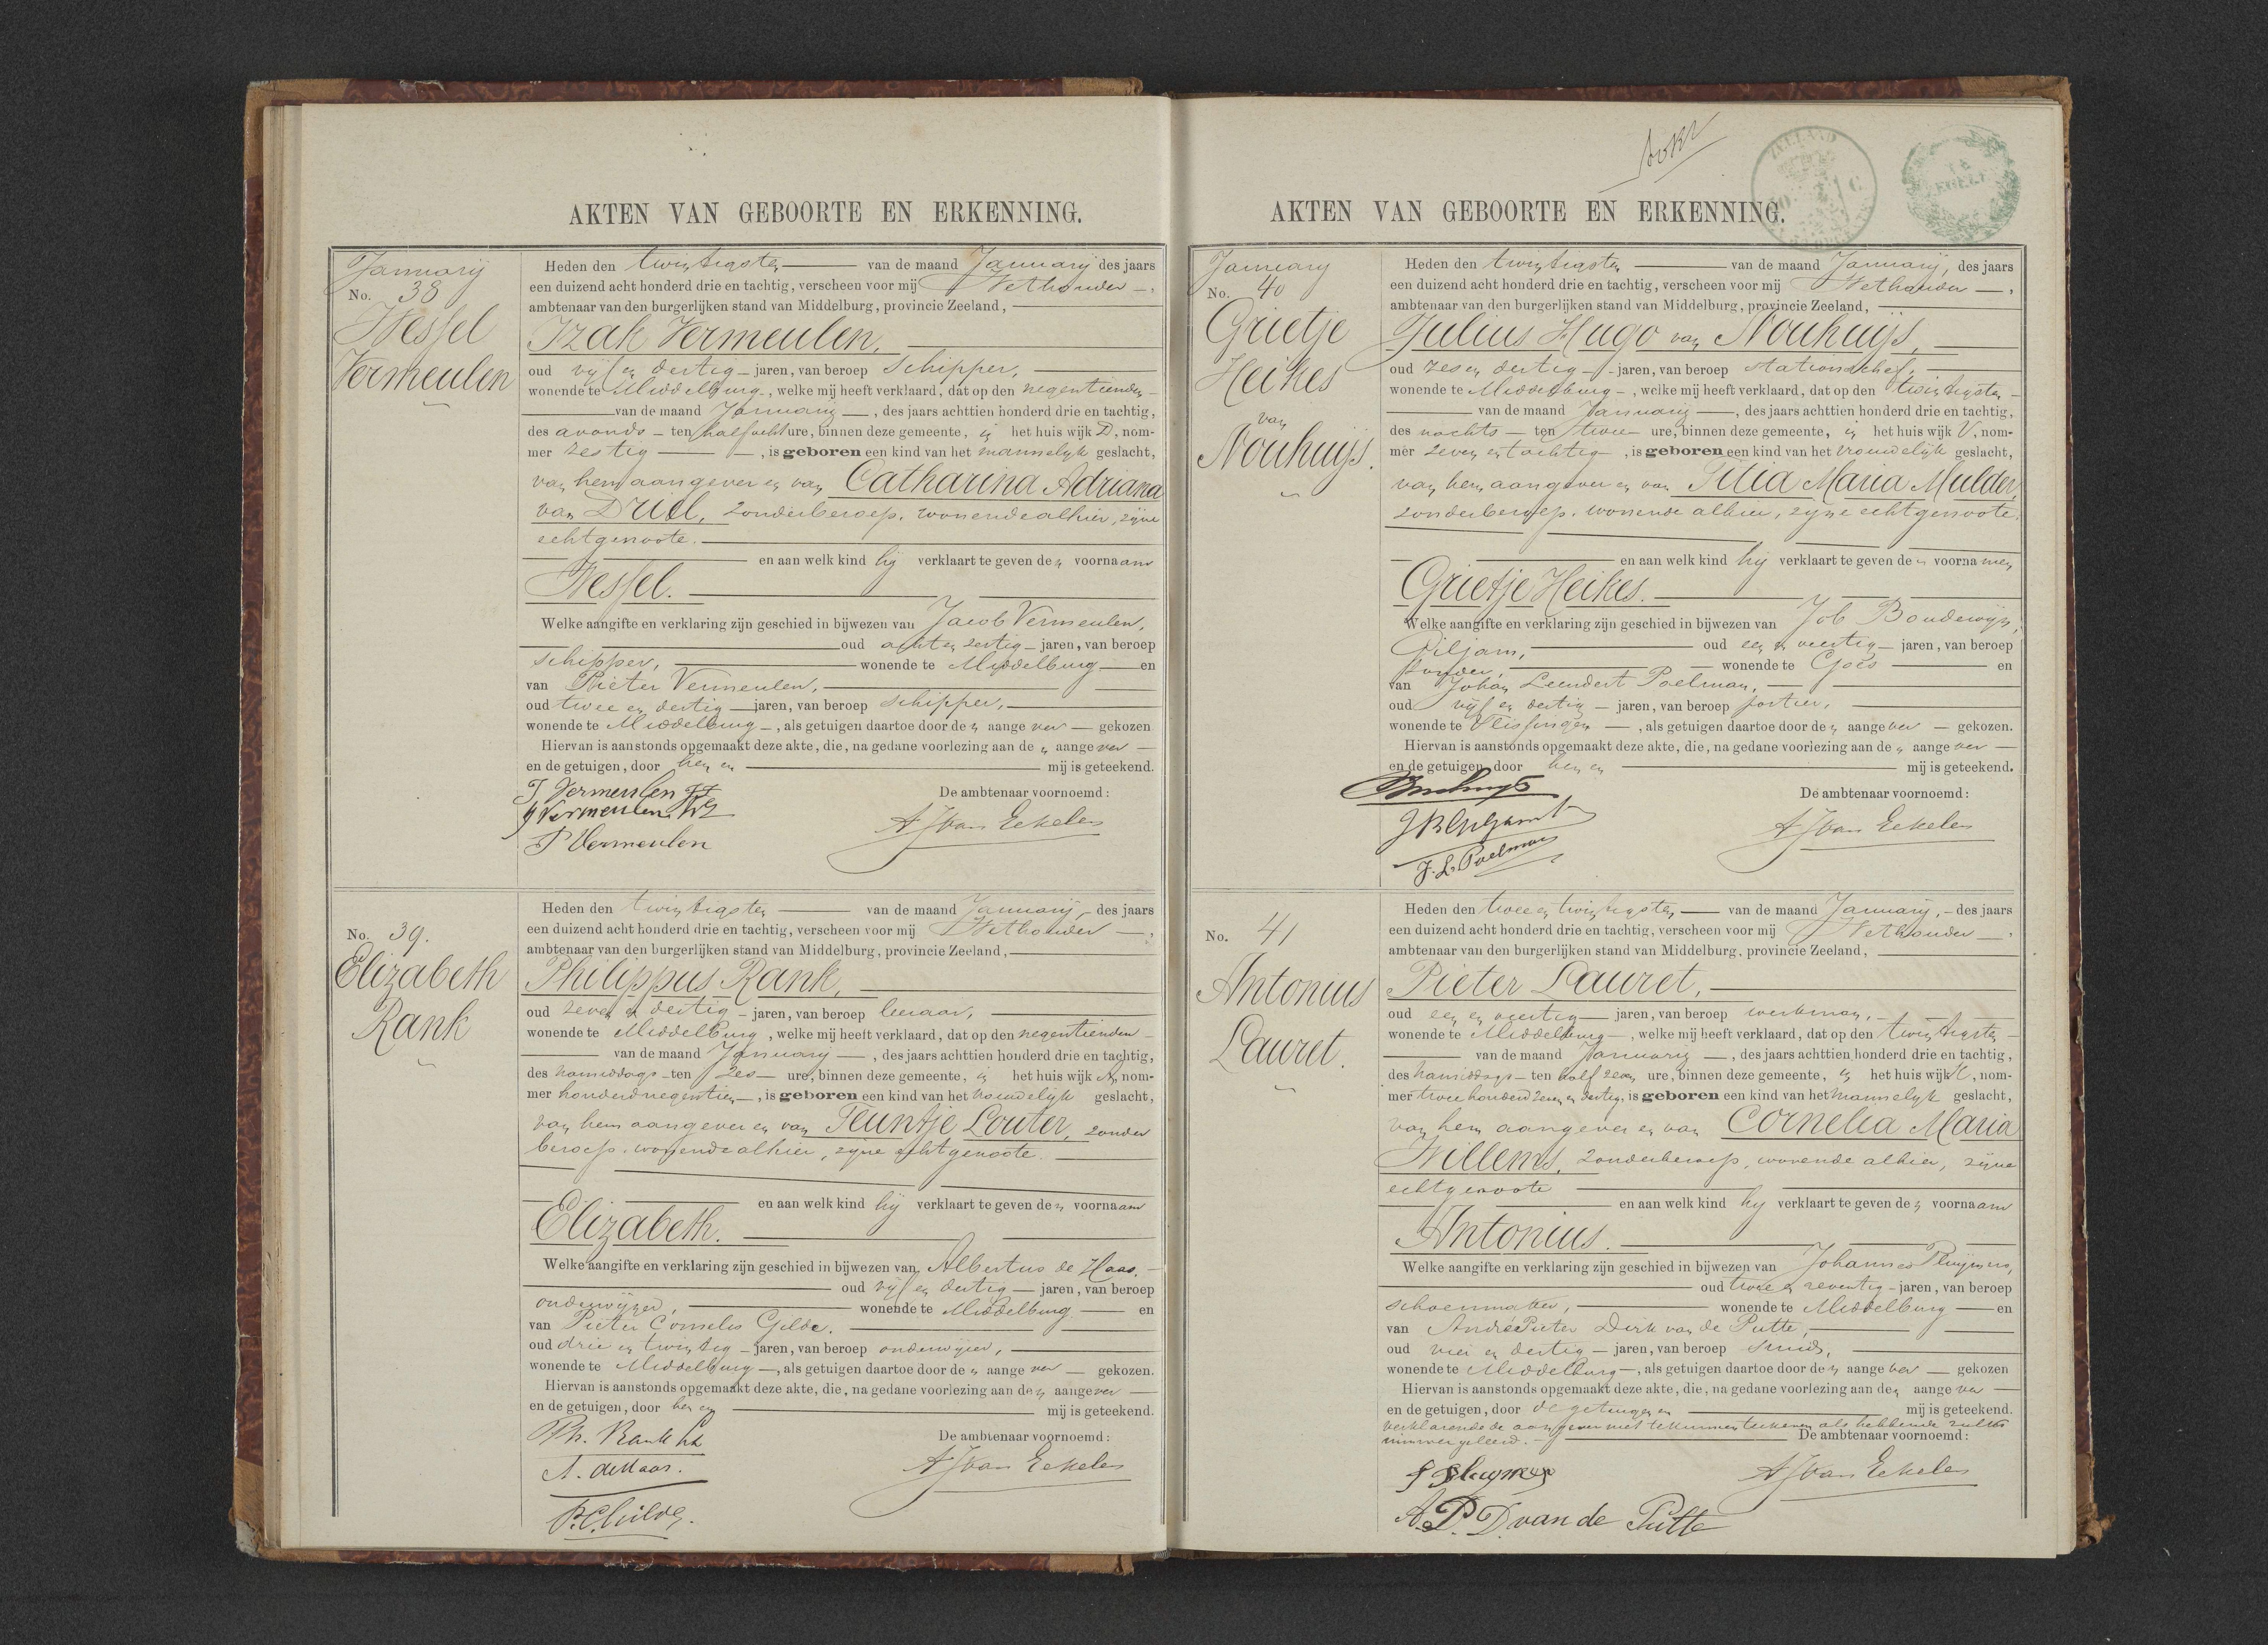 AKTEN VAN GEBOORTE EN ERKENNING.
January
No. 38
Wessel
Vermeulen
Heden den twintigsten van de maand January des jaars
een duizend acht honderd drie en tachtig, verscheen voor mij Wethouder,
ambtenaar van den burgerlijken stand van Middelburg, provincie Zeeland,
Izak Vermeulen,
oud vijf en dertig jaren, van beroep schipper,
wonende te Middelburg, welke mij heeft verklaard, dat op den negentienden
van de maand January, des jaars achttien honderd drie en tachtig,
des avonds ten half acht ure, binnen deze gemeente, in het huis wijk D, nom-
mer zestig, is geboren een kind van het mannelijk geslacht,
van hem aangever en van Catharina Adriana
van Driel, zonder beroep, wonende alhier, zijne
echtgenoote.
en aan welk kind hij verklaart te geven den voornaam
Wessel.
Welke aangifte en verklaring zijn geschied in bijwezen van Jacob Vermeulen,
oud acht en zestig jaren, van beroep
schipper, wonende te Middelburg en
van Pieter Vermeulen,
oud twee en dertig jaren, van beroep schipper,
wonende te Middelburg, als getuigen daartoe door den aangever gekozen
Hiervan is aanstonds opgemaakt deze akte, die, na gedane voorlezing aan den aangever
en de getuigen, door hen en mij is geteekend.
De ambtenaar voornoemd:
I Vermeulen
J Vermeulen
P Vermeulen
A J van Eekelen
No. 39.
Elizabeth
Rank
Heden den twintigsten van de maand January, des jaars
een duizend acht honderd drie en tachtig, verscheen voor mij Wethouder,
ambtenaar van den burgerlijken stand van Middelburg, provincie Zeeland,
Philippus Rank,
oud zeven en dertig jaren, van beroep leeraar,
wonende te Middelburg, welke mij heeft verklaard, dat op den negentienden
van de maand January, des jaars achttien honderd drie en tachtig,
des namiddags ten zes ure, binnen deze gemeente, in het huis wijk, nom-
mer honderd negentien, is geboren een kind van het vrouwelijk geslacht,
van hem aangever en van Teuntje Louter, zonder
beroep, wonende alhier, zijne echtgenoote.
en aan welk kind hij verklaart te geven den voornaam
Elizabeth.
Welke aangifte en verklaring zijn geschied in bijwezen van Albertus de Haas,
oud vijf en dertig jaren, van beroep
onderwijzer, wonende te Middelburg en
van Pieter Cornelis Gilde,
oud drie en twintig jaren, van beroep onderwijzer,
wonende te Middelburg, als getuigen daartoe door den aangever gekozen.
Hiervan is aanstonds opgemaakt deze akte, die, na gedane voorlezing aan den aangever
en de getuigen, door hen en mij is geteekend.
De ambtenaar voornoemd:
Ph. Rank
A. de Haas.
P.C. Gilde.
A J van Eekelen
ZEELAND
AKTEN VAN GEBOORTE EN ERKENNING.
January
No. 40
Grietje
Heikes
van
Nouhuijs.
Heden den twintigsten van de maand January, des jaars
een duizend acht honderd drie en tachtig, verscheen voor mij Wethouder,
ambtenaar van den burgerlijken stand van Middelburg, provincie Zeeland,
Julius Hugo van Nouhuijs,
oud zes en dertig jaren, van beroep stationschef,
wonende te Middelburg, welke mij heeft verklaard, dat op den twintigsten
van de maand January, des jaars achttien honderd drie en tachtig,
des nachts ten twee ure, binnen deze gemeente, in het huis wijk V, nom-
mer zeven en tachtig, is geboren een kind van het vrouwelijk geslacht,
van hem aangever en van Titia Maria Mulder,
zonder beroep, wonende alhier, zijne echtgenoote.
en aan welk kind hij verklaart te geven de voornamen
Grietje Heikes.
Welke aangifte en verklaring zijn geschied in bijwezen van Job Boudewijn
Giljam, oud een en veertig jaren, van beroep
wonende te Goes en
van Johan Leendert Poelman,
oud vijf en dertig jaren, van beroep portier,
wonende te Vlissingen, als getuigen daartoe door den aangever gekozen.
Hiervan is aanstonds opgemaakt deze akte, die, na gedane voorlezing aan den aangever
en de getuigen, door hen en mij is geteekend.
De ambtenaar voornoemd:
J B Giljam
J. L. Poelman
A J van Eekelen
No. 41
Antonius
Lauret.
Heden den twee en twintigsten van de maand January, des jaars
een duizend acht honderd drie en tachtig, verscheen voor mij Wethouder,
ambtenaar van den burgerlijken stand van Middelburg, provincie Zeeland,
Pieter Lauret,
oud een en veertig jaren, van beroep werkman,
wonende te Middelburg, welke mij heeft verklaard, dat op den twintigsten
van de maand January, des jaars achttien honderd drie en tachtig,
des namiddags ten half zeven ure, binnen deze gemeente, in het huis wijk, nom-
mer twee honderd zeven en dertig, is geboren een kind van het mannelijk geslacht,
van hem aangever en van Cornelia Maria
Willems, zonder beroep, wonende alhier, zijne
echtgenoote
en aan welk kind hij verklaart te geven den voornaam
Antonius.
Welke aangifte en verklaring zijn geschied in bijwezen van Johannes Pluijmers,
oud twee en zeventig jaren, van beroep
schoenmaker, wonende te Middelburg en
van André Pieter Dirk van de Putte,
oud vier en dertig jaren, van beroep smid,
wonende te Middelburg, als getuigen daartoe door den aangever gekozen
Hiervan is aanstonds opgemaakt deze akte, die, na gedane voorlezing aan den aangever
en de getuigen, door de getuigen en mij is geteekend.
verklarende de aangever niet te kunnen teekenen als hebbende zulks
nimmer geleerd.
De ambtenaar voornoemd:
J Pluymers
A. P. D. van de Putte
A J van Eekelen